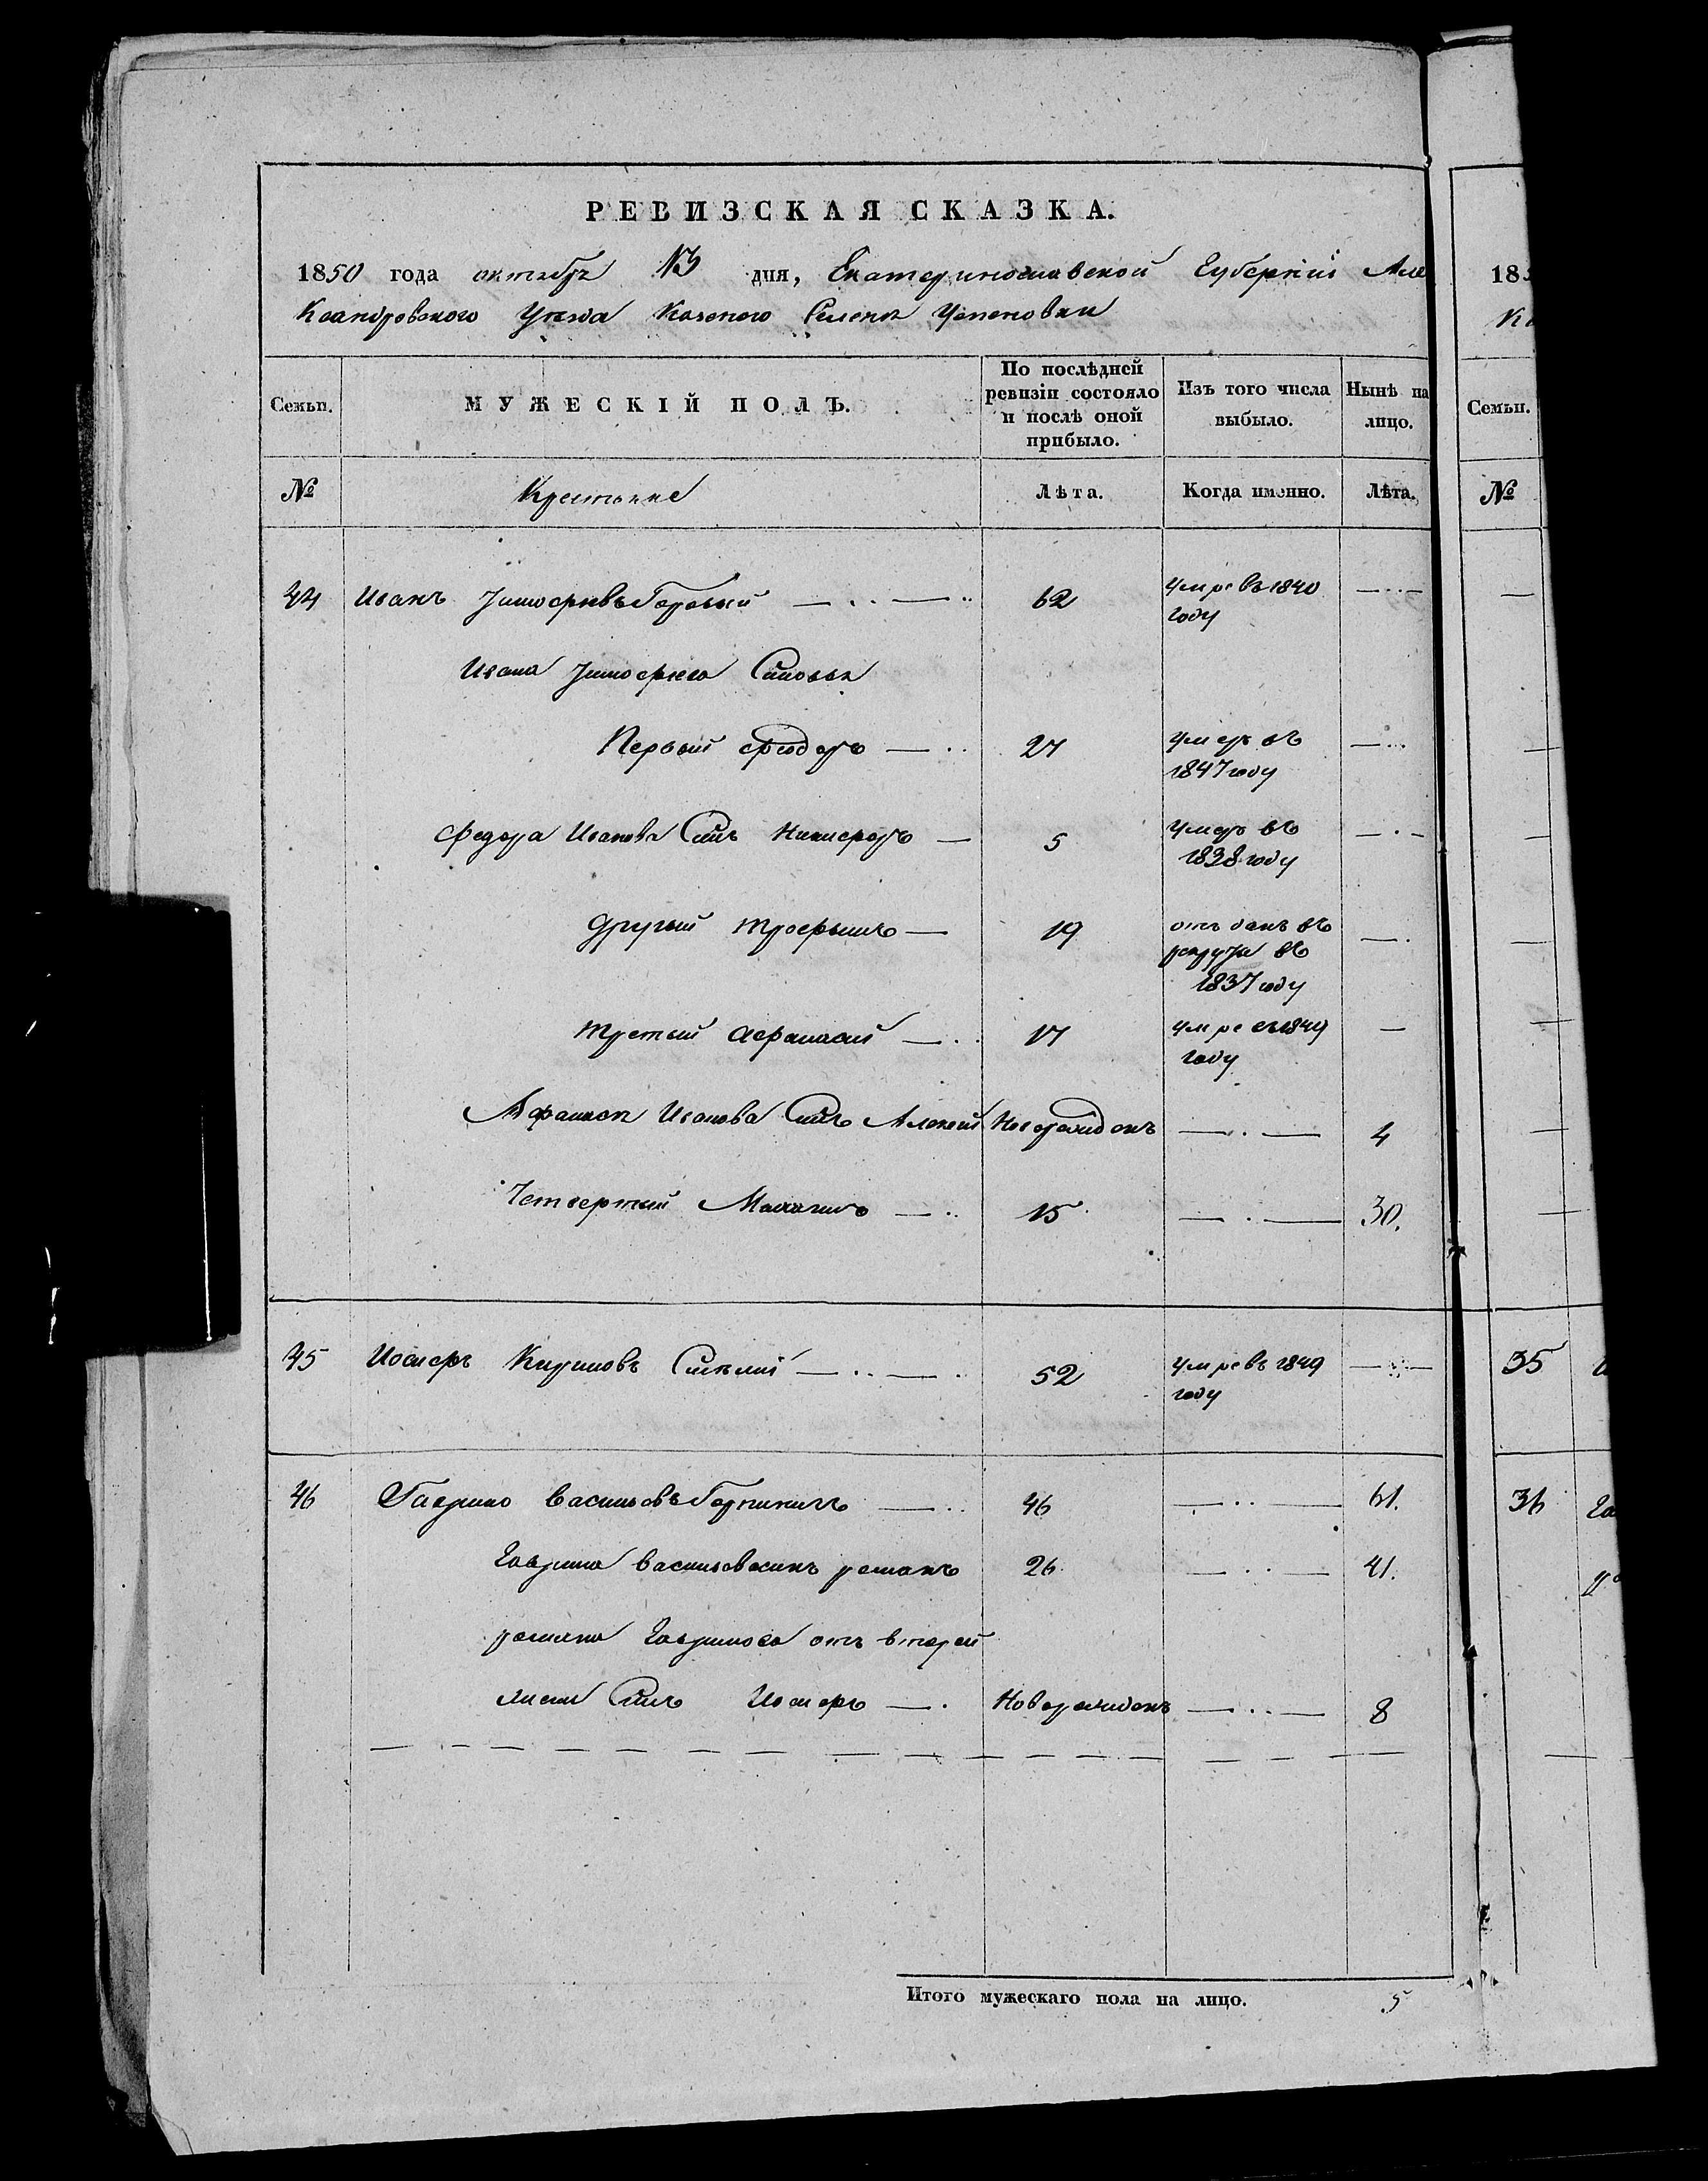 РЕВИЗСКАЯ СКАЗКА.
1850 года октября 13 дня, Екатеринославской Губернiи Але
ксандровского Уезда Казеного Селенiя Успеновки
Семьи.
МУЖЕСКІЙ ПОЛЪ.
По послѣдней ревизіи состояло и послѣ оной прибыло.
Изъ того числа выбыло.
Нынѣ на лицо.
№
Крестьяне
Лѣта.
Когда именно.
Лѣта.
44 Иванъ Тимофѣевъ 62 умре въ 1840
году
Ивана Тимофѣева Сыновья
Первый Федоръ 27 умеръ въ
1847 году
Федора Иванова Сынъ Никифоръ 5 умеръ въ
1838 году
Другий Трофымъ 19 отъ данъ въ
рекруты въ
1837 году
Третий Афанасий 17 умре въ 1849
году
Афанасiя Иванова Сынъ Алексей Новорожденъ 4
Четвертий 15 30.
45 Иосифъ 52 умре въ 1849
году
46 Гаврило Васильовъ 46 61.
Гаврила Васильова сынъ романъ 26 41.
романа Гаврилова отъ второй
жены Сынъ Иосифъ Новорожденъ 8
Итого мужескаго пола на лицо. 5
185
Семьи.
№
35
36